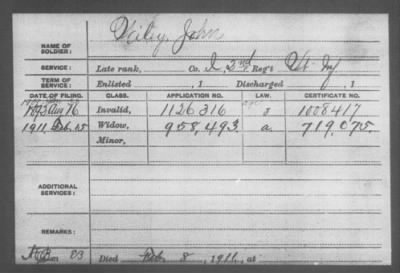 NAME OF SOLDIER: John
SERVICE: Late rank, Co. I 2nd Reg't Inf
TERM OF SERVICE: Enlisted , 1 Discharged , 1
DATE OF FILING. CLASS. APPLICATION NO. LAW. CERTIFICATE NO.
Invalid, 1126316 1008417
1911 Feb. 25 Widow, 958,493 a. 719,075.
Minor,
ADDITIONAL SERVICES:
REMARKS:
Died Feb. 8, 1911, at